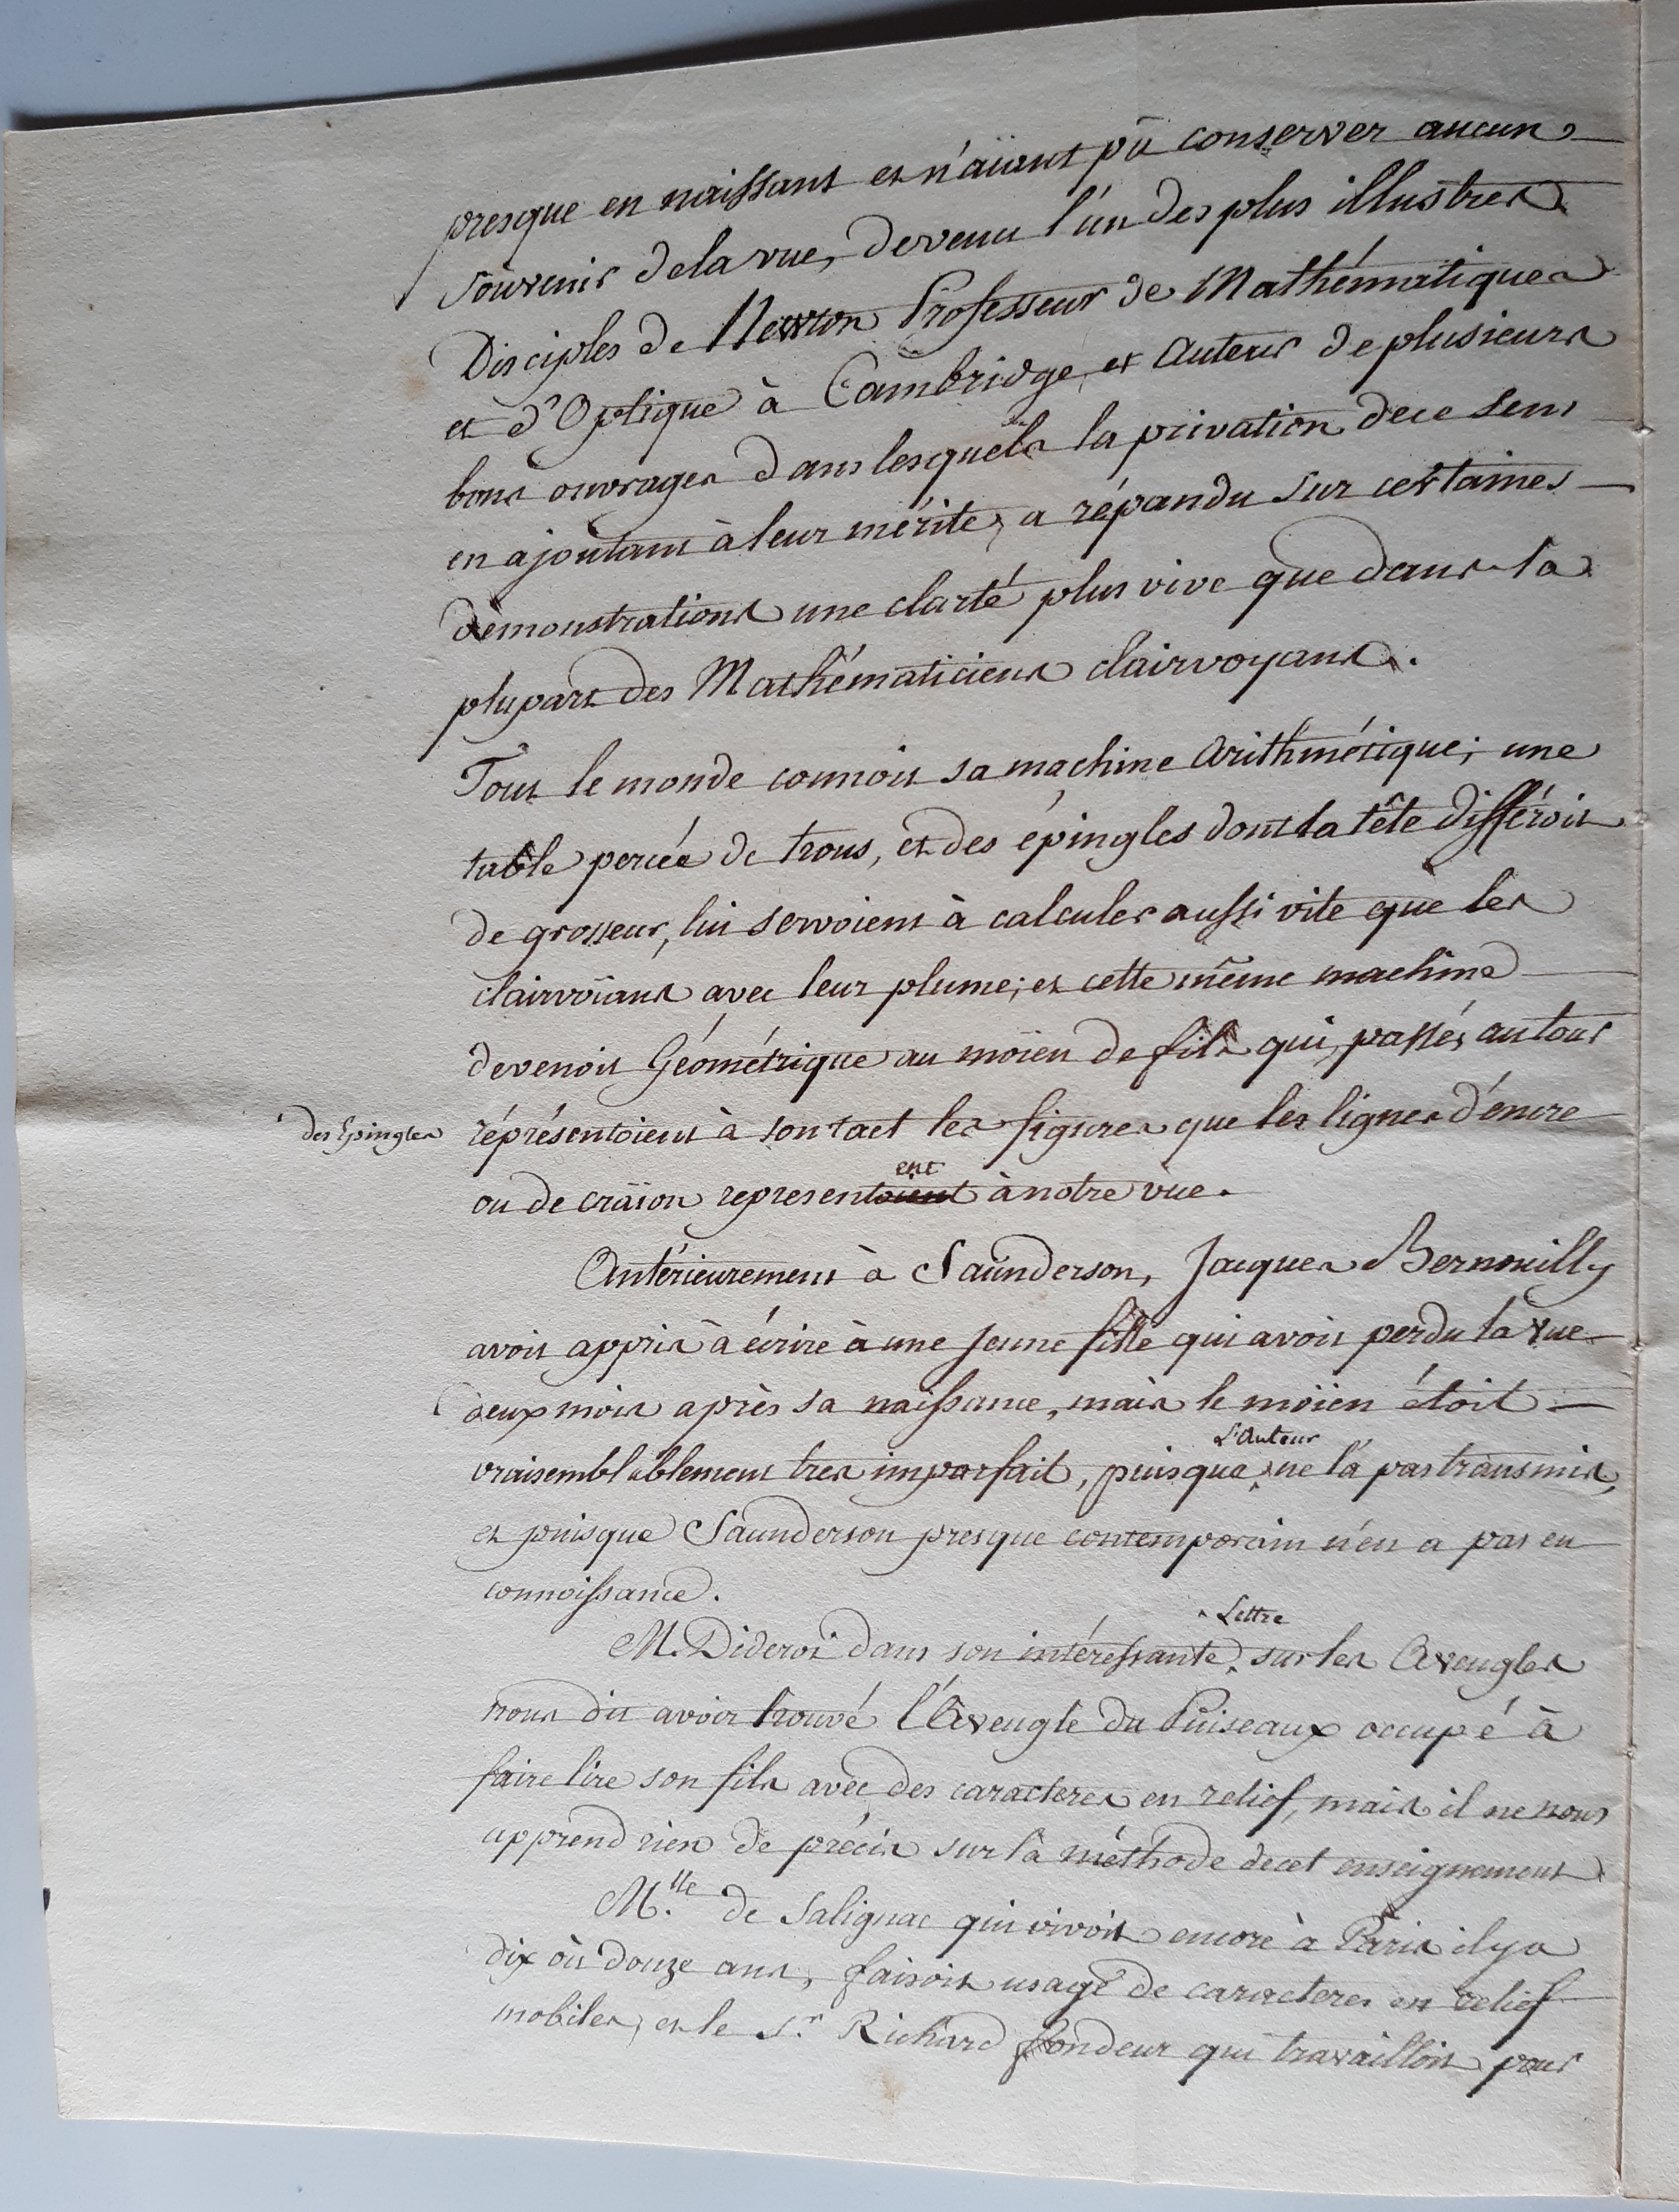 presque en naissant et n'aïant pû conserver aucun
souvenir de la vue, devenu l'un des plus illustres
Disciples de Newton Professeur de Mathématiques
et d'Optique à Cambridge et Auteur de plusieurs
bons ouvrages dans lesquels la privation de ce sens
en ajoutant à leur mérite, a répandu sur certaines
démonstrations une clarté plus vive que dans la
plupart des Mathématiciens clairvoyans.
Tout le monde connoit sa machine Arithmétique; une
table percée de trous, et des épingles dont la tête différoit
de grosseur, lui servoient à calculer aussi vite que les
clairvoïans avec leur plume; et cette même machine
devenoit Géométrique au moïen de fils qui, passés autour
des Epingles réprésentoient à son tact les figures que les lignes d'encre
ent
ou de craïon representoient à notre vüe.
Antérieurement à Saünderson, Jacques Bernouilly
avoit appris à écrire à une jeune fille qui avoit perdu la vue
deux mois après sa naissance, mais le moïen étoit
L'Auteur
vraisemblablement tres imparfait, puisque ne l'a pas transmis,
et puisque Saunderson presque contemporain n'en a pas eu
connoissance.
Lettre
M. Diderot dans son intéressante sur les Aveugles
nous dit avoir trouvé l'Aveugle du Puiseaux occupé à
faire lire son fils avec des caracteres en relief, mais il ne nous
apprend rien de précis sur la méthode de cet enseignement
M.lle de Salignac qui vivoit encore à Paris il y a
dix où douze ans, faisoit usage de caracteres en relief
mobiles, et le S.r Richard fondeur qui travailloit pour